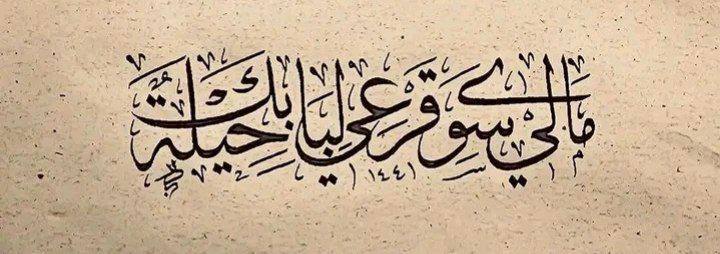 مَالِي سِوَى قَرْعِي لِبَابِكَ حِيلَةٌ
١٤٤١